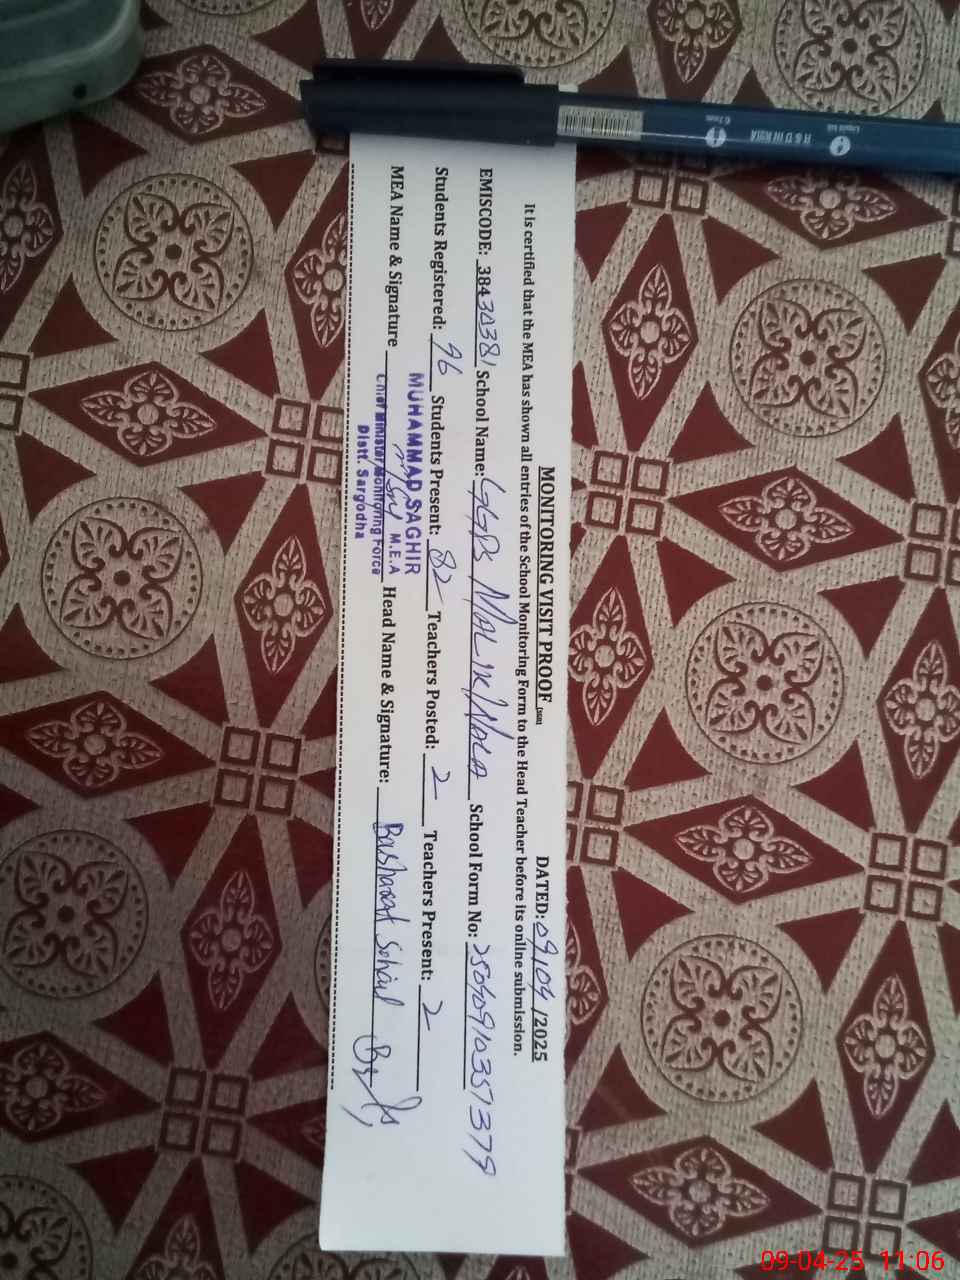 MONITORING VISIT PROOF DATED: 09/04/2025
It is certified that the MEA has shown all entries of the School Monitoring Form to the Head Teacher before its online submission.
EMISCODE: 38430381 School Name: GGPS MALIK WALA School Form No: 2504091035737
Students Registered: 96 Students Present: 82 Teachers Posted: 2 Teachers Present: 2
MEA Name & Signature Head Name & Signature: Basharat Sohail
MUHAMMAD SAGHIR
M.E.A
Chief Minister Monitoring Force
Distt. Sargodha
0.7mm
Liquid Ink
09-04-25 11:06